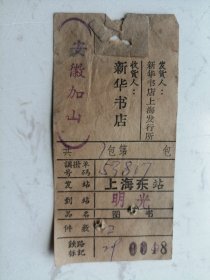 发货人：
新华书店上海发行所
收货人：
新华书店
（安徽加山）
共 1包第 包
誤撥单号码 59817
发站 上海东站
到站 明光
品名 图书
件数 2
鉄路标记 29 0048